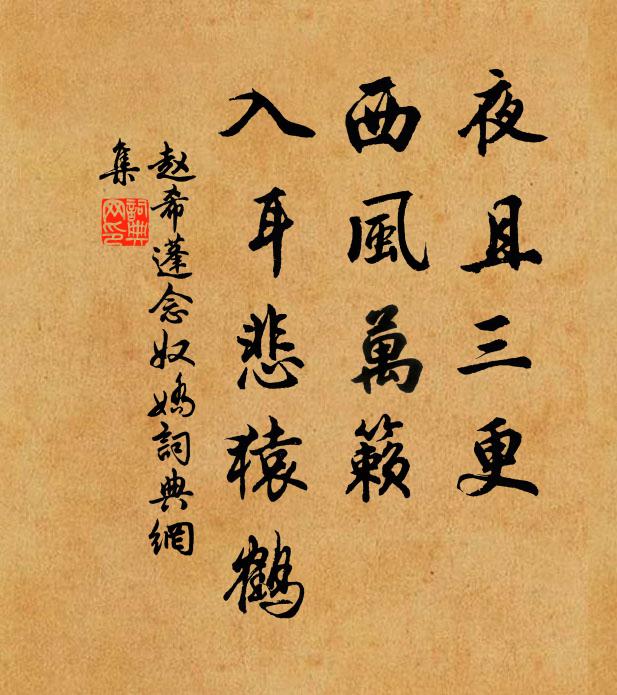 夜且三更
西風萬籟
入耳悲猿鶴
赵希蓬念奴嬌詞典網
集
詞典
网印